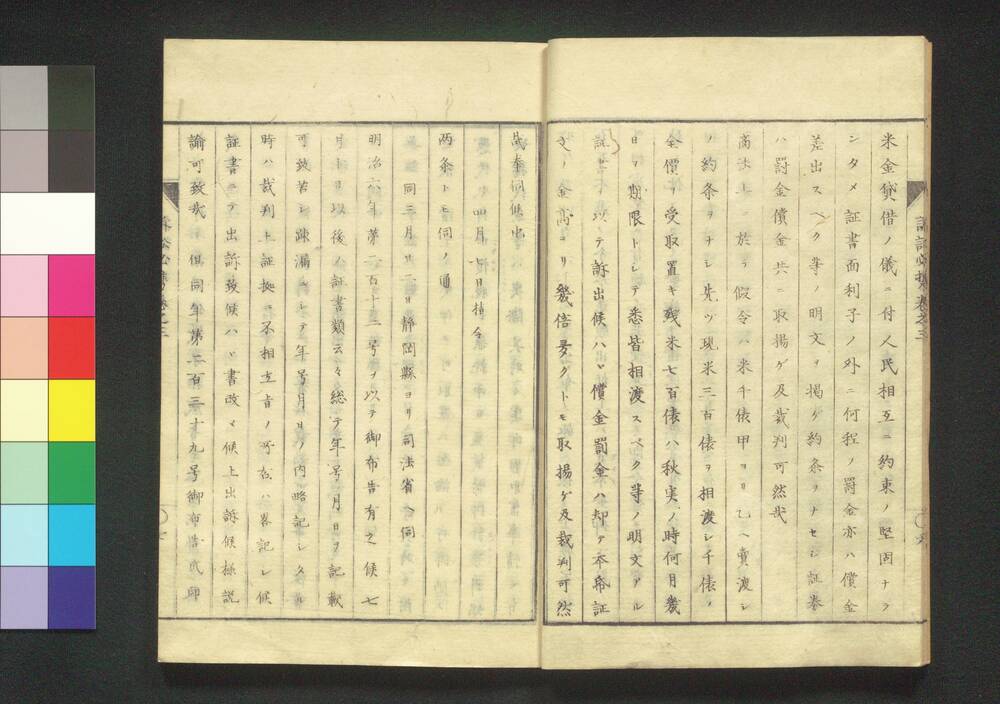 米金貸借ノ儀ニ付人民相互ニ約束ノ堅固ナラ
シタメ証書面利子ノ外ニ何程ノ罰金亦ハ償金
差出スベク等ノ明文ヲ掲ゲ約条ヲナセシ証券
ハ罰金償金共ニ取揚ゲ及裁判可然哉
商法上ニ於テ假令ハ米千俵甲ヨリ乙ヘ賣渡シ
ノ約条ヲナシ先ヅ現米三百俵ヲ相渡シ千俵ノ
全價ヲ受取置キ残米七百俵ハ秋実ノ時何月幾
日ヲ期限トシテ悉皆相渡スベク等ノ明文アル
証書ヲ以テ訴出候ハヽ償金罰金ハ却テ本希証
文ノ金高ヨリ幾倍多クトモ取揚ゲ及裁判可然
哉奉伺候也
四月七日指令
両条トモ伺ノ通
同三月廿二日静岡縣ヨリ司法省ヘ伺
明治六年第二百十三号ヲ以テ御布告有之候七
月十日以後ハ証書類云々総テ年号月日ヲ記載
可致若シ疎漏ニシテ年号月日ノ内略記シタル
時ハ裁判上証拠ニ不相立旨ノ所右ハ畧記シ候
証書ニテ出訴致候ハヽ書改メ候上出訴候様説
諭可致哉但同年第二百三十九号御布告式印